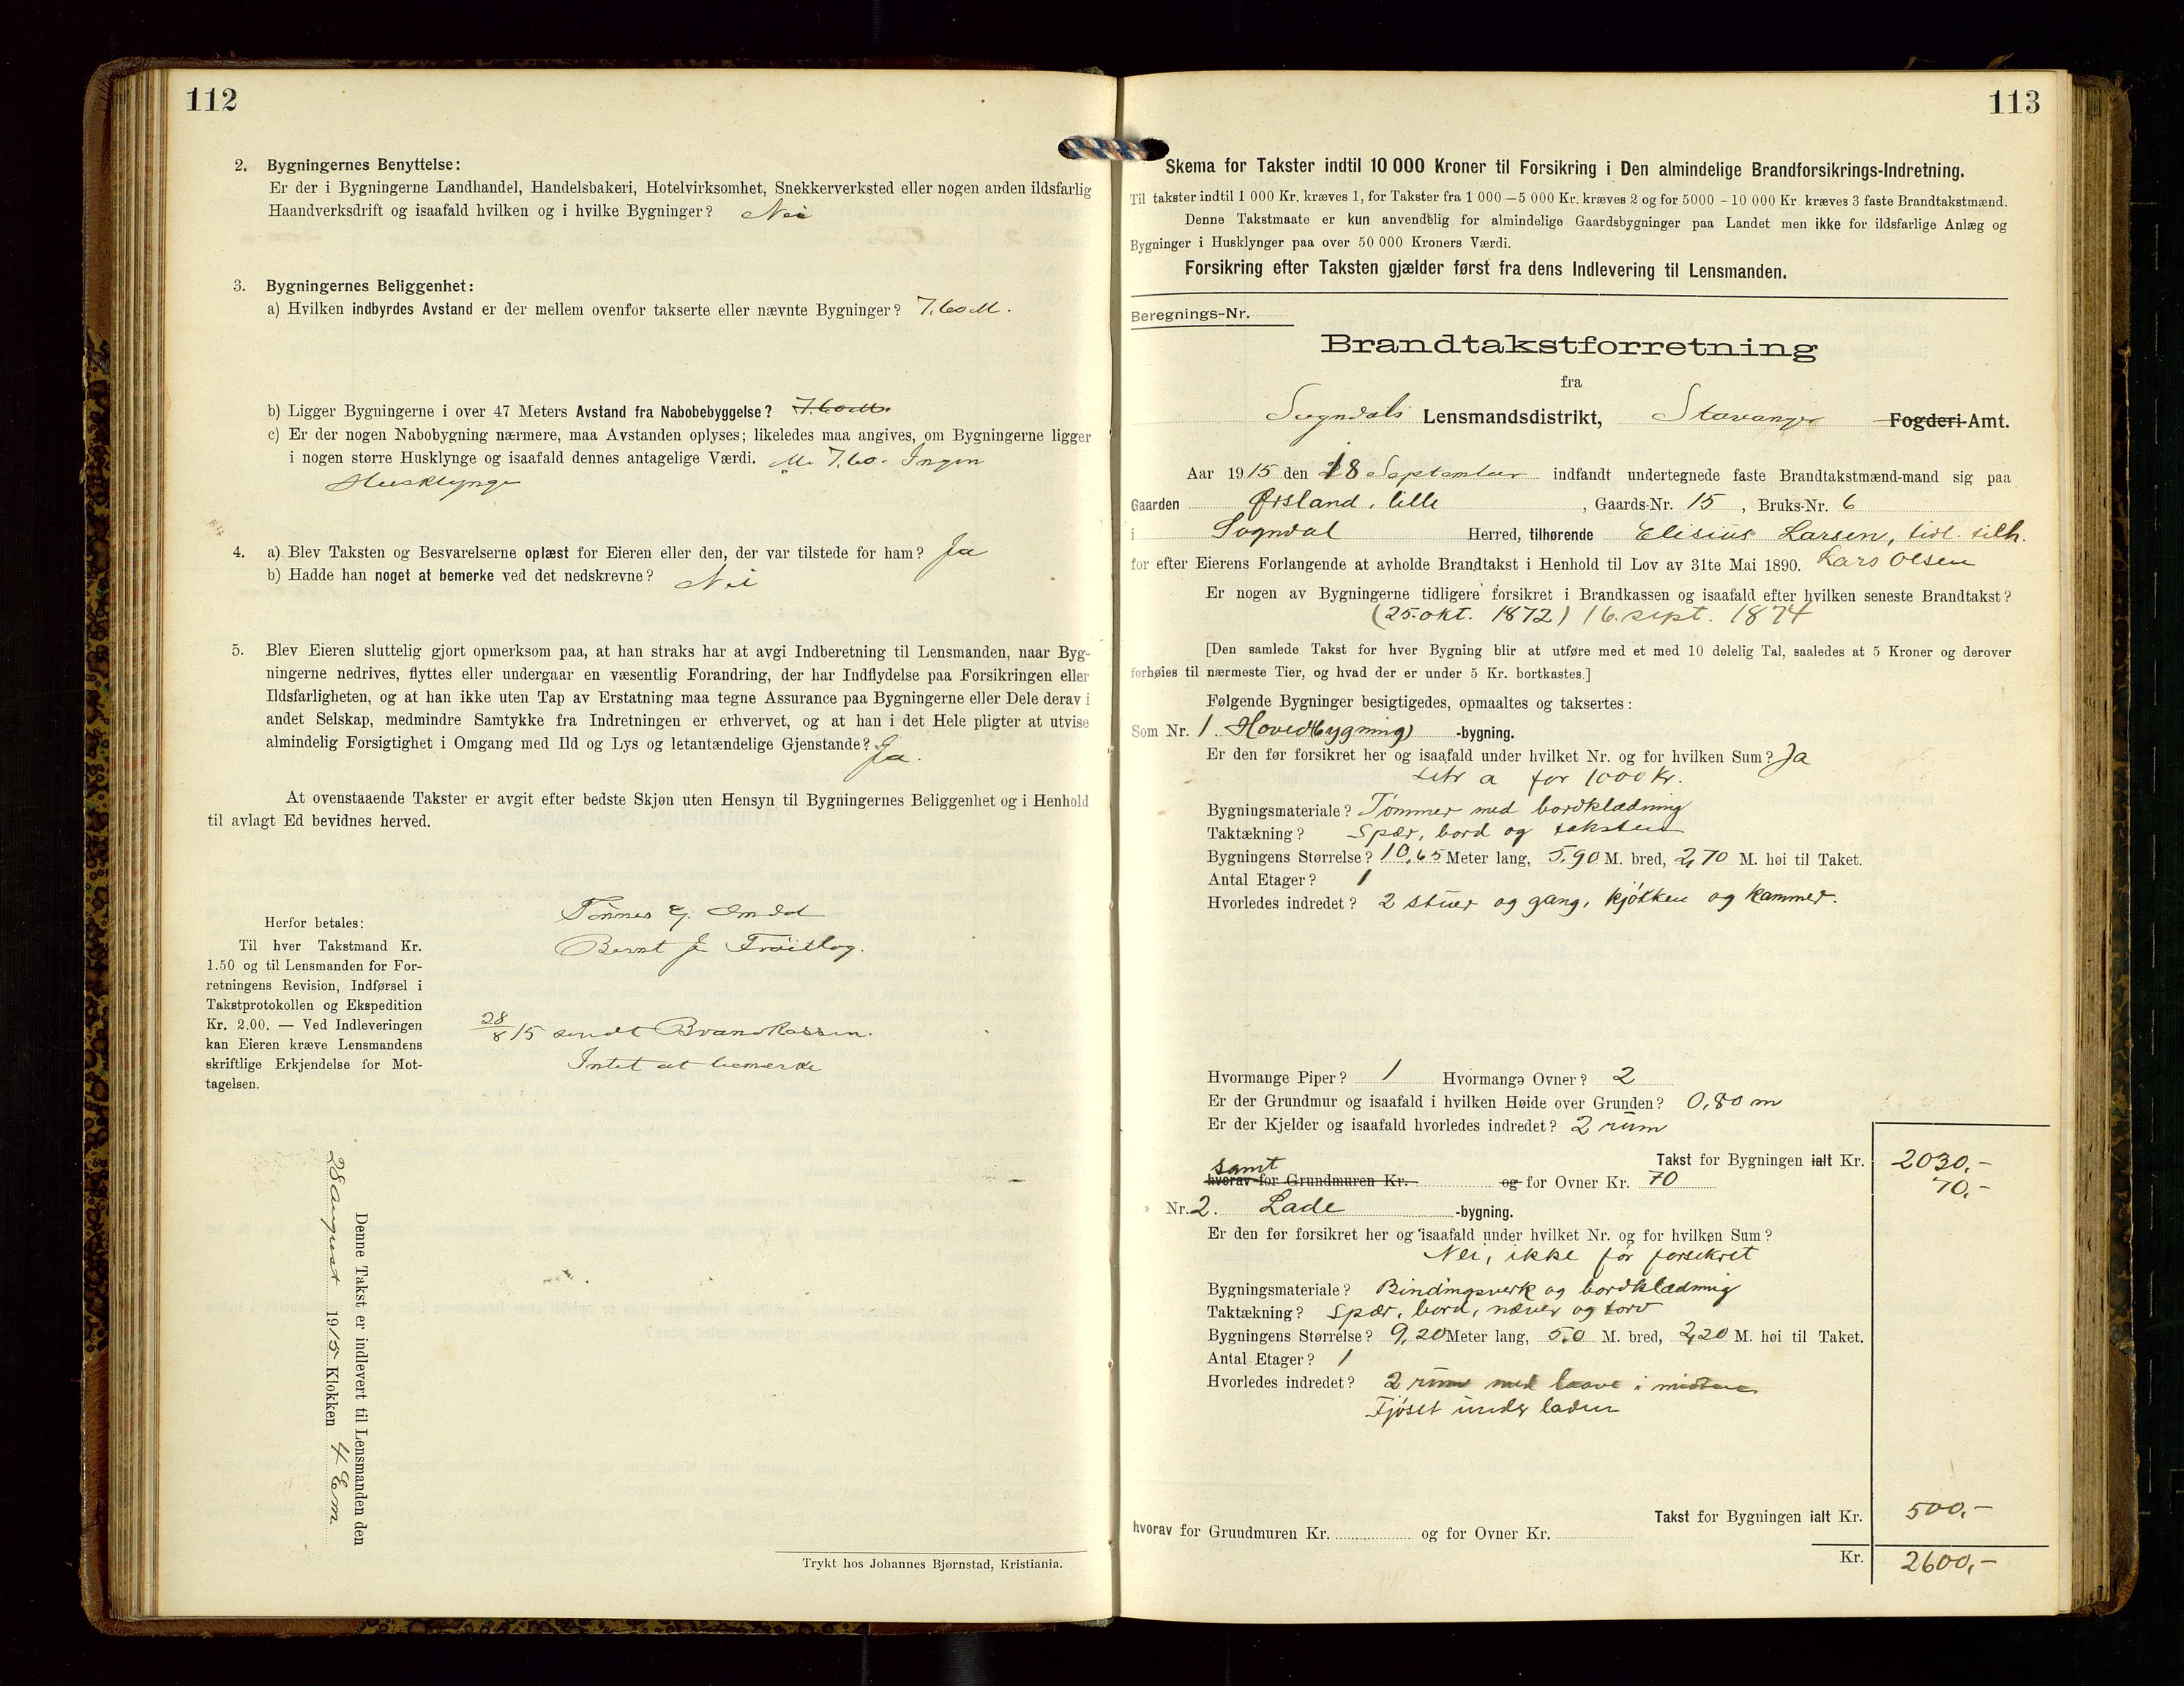 112
2. Bygningernes Benyttelse:
Er der i Bygningerne Landhandel, Handelsbakeri, Hotelvirksomhet, Snekkerverksted eller nogen anden ildsfarlig
Haandverksdrift og isaafald hvilken og i hvilke Bygninger? Nei
3. Bygningernes Beliggenhet:
a) Hvilken indbyrdes Avstand er der mellem ovenfor takserte eller nævnte Bygninger? 7.60 M.
b) Ligger Bygningerne i over 47 Meters Avstand fra Nabobebyggelse? 7.60 M.
c) Er der nogen Nabobygning nærmere, maa Avstanden oplyses; likeledes maa angives, om Bygningerne ligger
i nogen større Husklynge og isaafald dennes antagelige Værdi. M. 7.60. Ingen
Husklynge
4. a) Blev Taksten og Besvarelserne oplæst for Eieren eller den, der var tilstede for ham? Ja
b) Hadde han noget at bemerke ved det nedskrevne? Nei
5. Blev Eieren sluttelig gjort opmerksom paa, at han straks har at avgi Indberetning til Lensmanden, naar Byg-
ningerne nedrives, flyttes eller undergaar en væsentlig Forandring, der har Indflydelse paa Forsikringen eller
Ildsfarligheten, og at han ikke uten Tap av Erstatning maa tegne Assurance paa Bygningerne eller Dele derav i
andet Selskap, medmindre Samtykke fra Indretningen er erhvervet, og at han i det Hele pligter at utvise
almindelig Forsigtighet i Omgang med Ild og Lys og letantændelige Gjenstande? Ja.
At ovenstaaende Takster er avgit efter bedste Skjøn uten Hensyn til Bygningernes Beliggenhet og i Henhold
til avlagt Ed bevidnes herved.
Tønnes G. Omdal
Bernt J. Frøitlog.
Herfor betales:
Til hver Takstmand Kr.
1.50 og til Lensmanden for For-
retningens Revision, Indførsel i
Takstprotokollen og Ekspedition
Kr. 2.00. — Ved Indleveringen
kan Eieren kræve Lensmandens
skriftlige Erkjendelse for Mot-
tagelsen.
28/8 15 sendt Brandkassen.
Intet at bemerke
Denne Takst er indlevert til Lensmanden den
28 august 1915 Klokken 4 Em.
Trykt hos Johannes Bjørnstad, Kristiania.
113
Skema for Takster indtil 10 000 Kroner til Forsikring i Den almindelige Brandforsikrings-Indretning.
Til takster indtil 1 000 Kr. kræves 1, for Takster fra 1 000 – 5 000 Kr. kræves 2 og for 5000 - 10 000 Kr. kræves 3 faste Brandtakstmænd.
Denne Takstmaate er kun anvendelig for almindelige Gaardsbygninger paa Landet men ikke for ildsfarlige Anlæg og
Bygninger i Husklynger paa over 50 000 Kroners Værdi.
Forsikring efter Taksten gjælder først fra dens Indlevering til Lensmanden.
Beregnings-Nr.
Brandtakstforretning
fra
Sogndals Lensmandsdistrikt, Stavanger Fogderi-Amt.
Aar 1915 den 18 September indfandt undertegnede faste Brandtakstmænd-mand sig paa
Gaarden Ørsland, lille, Gaards-Nr. 15, Bruks-Nr. 6
i Sogndal Herred, tilhørende Elisius Larsen, tidl. tilh.
for efter Eierens Forlangende at avholde Brandtakst i Henhold til Lov av 31te Mai 1890. Lars Olsen
Er nogen av Bygningerne tidligere forsikret i Brandkassen og isaafald efter hvilken seneste Brandtakst?
(25. okt. 1872) 16. sept. 1874
[Den samlede Takst for hver Bygning blir at utføre med et med 10 delelig Tal, saaledes at 5 Kroner og derover
forhøies til nærmeste Tier, og hvad der er under 5 Kr. bortkastes.]
Følgende Bygninger besigtigedes, opmaaltes og taksertes:
Som Nr. 1. Hoved(bygning) -bygning.
Er den før forsikret her og isaafald under hvilket Nr. og for hvilken Sum? Ja
Litr a for 1000 kr.
Bygningsmateriale? Tømmer med bordklædning
Taktækning? Spær, bord og taksten
Bygningens Størrelse? 10,65 Meter lang, 5,90 M. bred, 2,70 M. høi til Taket.
Antal Etager? 1
Hvorledes indredet? 2 stuer og gang, kjøkken og kammer.
Hvormange Piper? 1 Hvormange Ovner? 2
Er der Grundmur og isaafald i hvilken Høide over Grunden? 0,80 m
Er der Kjelder og isaafald hvorledes indredet? 2 rum
Takst for Bygningen ialt Kr. 2030,-
samt
hvorav for Grundmuren Kr. og for Ovner Kr. 70 70,-
Nr. 2. Lade -bygning.
Er den før forsikret her og isaafald under hvilket Nr. og for hvilken Sum?
Nei, ikke før forsikret
Bygningsmateriale? Bindingsverk og bordklædning
Taktækning? Spær, bord, næver og torv
Bygningens Størrelse? 9,20 Meter lang, 5.0 M. bred, 2,20 M. høi til Taket.
Antal Etager? 1
Hvorledes indredet? 2 rum med laave i midten
Fjøset under laden
Takst for Bygningen ialt Kr. 500,-
hvorav for Grundmuren Kr. og for Ovner Kr.
Kr. 2600,-